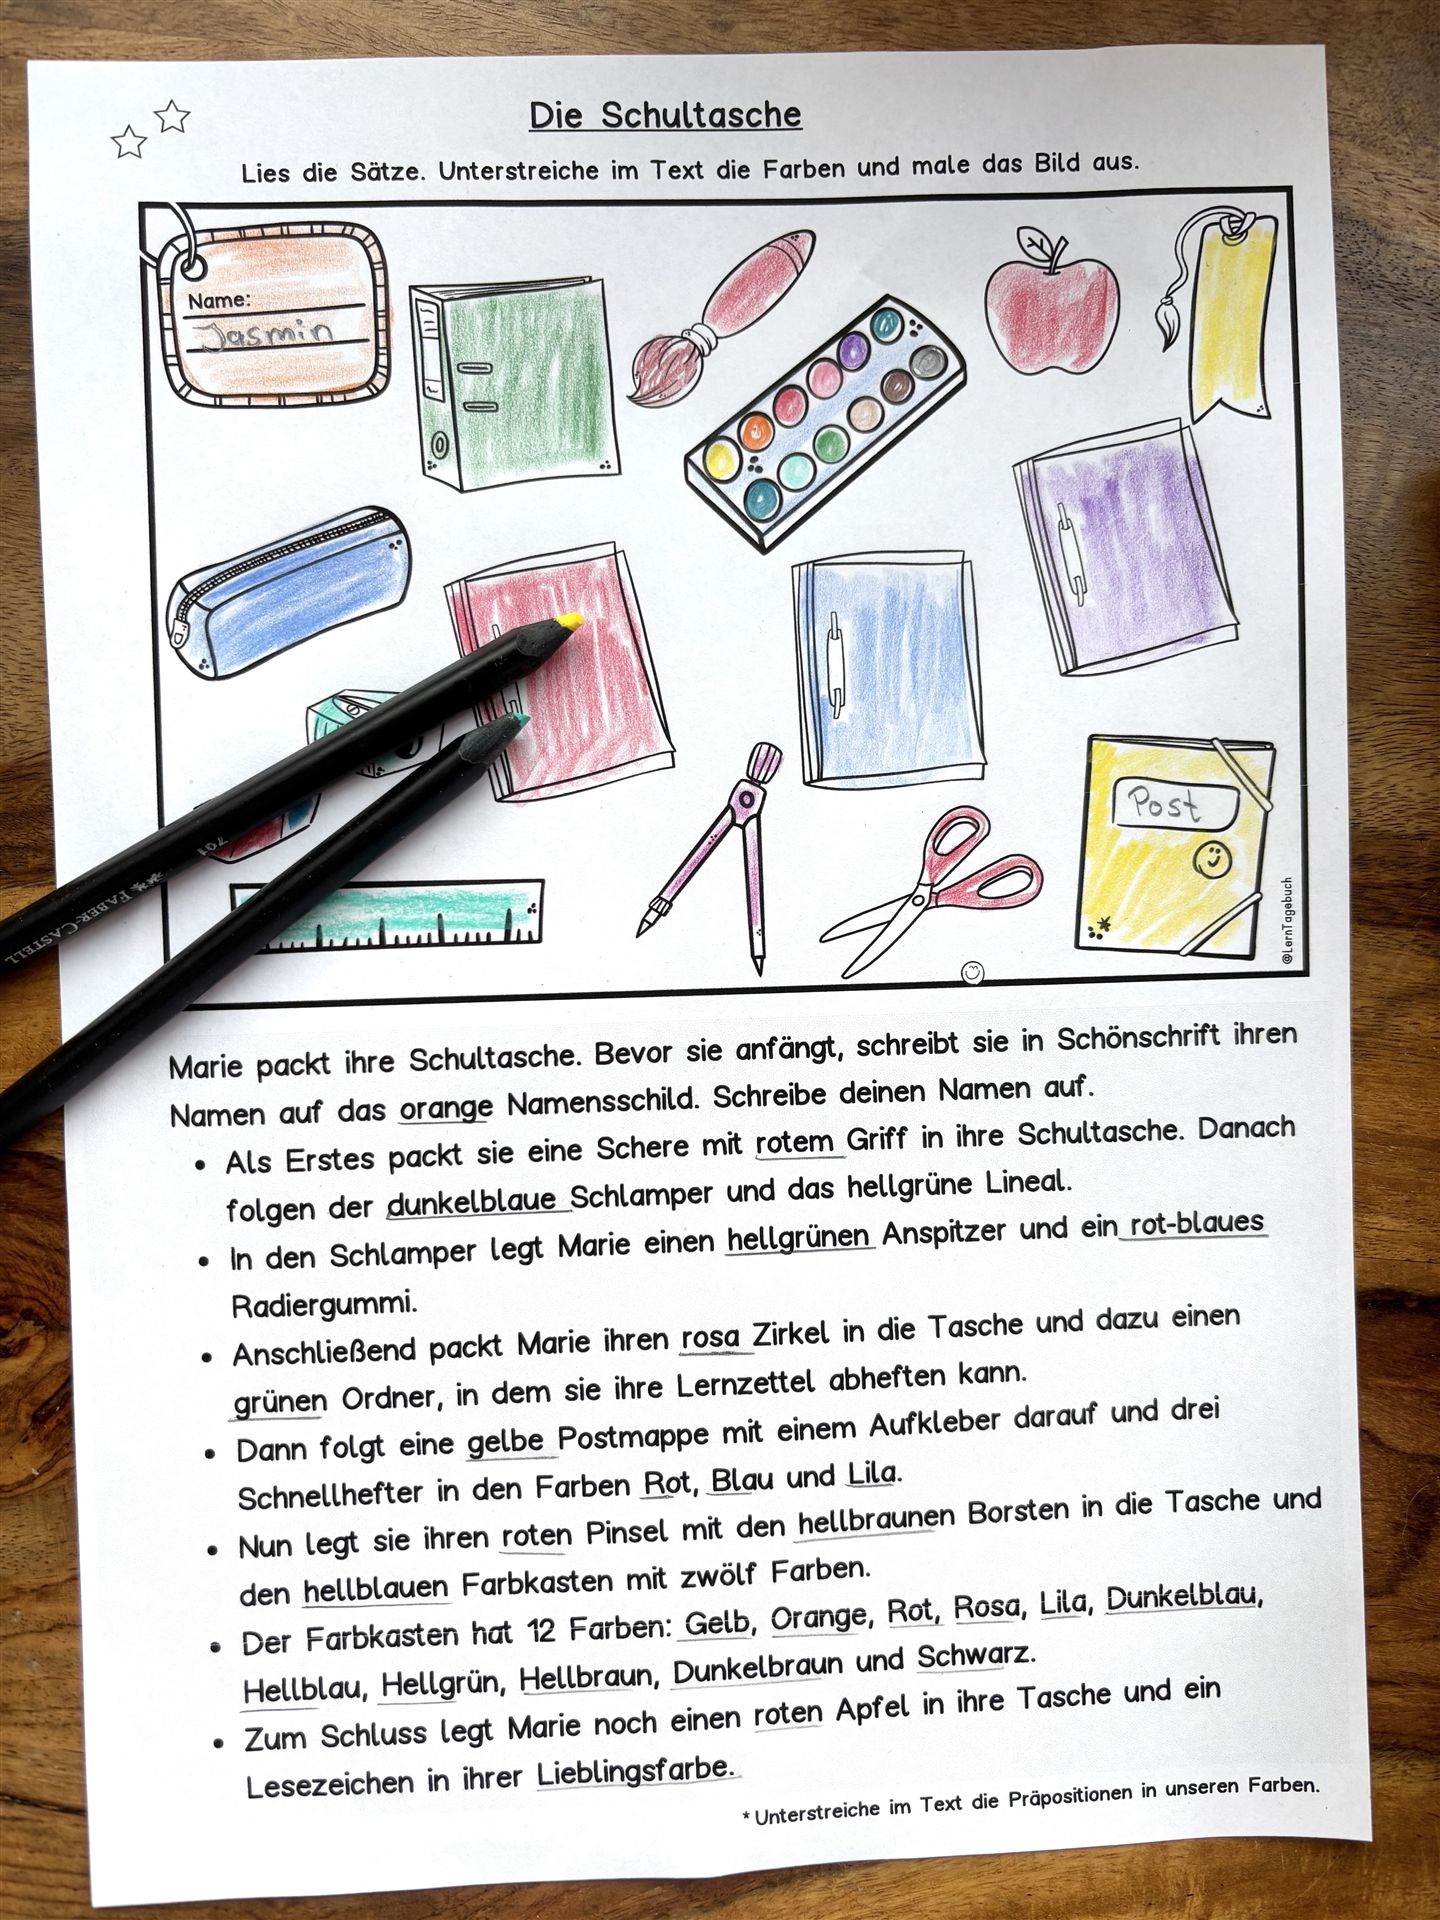 Die Schultasche
Lies die Sätze. Unterstreiche im Text die Farben und male das Bild aus.
Name:
Jasmin
Post
701
FABER-CASTELL
@LernTagebuch
Marie packt ihre Schultasche. Bevor sie anfängt, schreibt sie in Schönschrift ihren
Namen auf das orange Namensschild. Schreibe deinen Namen auf.
• Als Erstes packt sie eine Schere mit rotem Griff in ihre Schultasche. Danach
folgen der dunkelblaue Schlamper und das hellgrüne Lineal.
• In den Schlamper legt Marie einen hellgrünen Anspitzer und ein rot-blaues
Radiergummi.
• Anschließend packt Marie ihren rosa Zirkel in die Tasche und dazu einen
grünen Ordner, in dem sie ihre Lernzettel abheften kann.
• Dann folgt eine gelbe Postmappe mit einem Aufkleber darauf und drei
Schnellhefter in den Farben Rot, Blau und Lila.
• Nun legt sie ihren roten Pinsel mit den hellbraunen Borsten in die Tasche und
den hellblauen Farbkasten mit zwölf Farben.
• Der Farbkasten hat 12 Farben: Gelb, Orange, Rot, Rosa, Lila, Dunkelblau,
Hellblau, Hellgrün, Hellbraun, Dunkelbraun und Schwarz.
• Zum Schluss legt Marie noch einen roten Apfel in ihre Tasche und ein
Lesezeichen in ihrer Lieblingsfarbe.
* Unterstreiche im Text die Präpositionen in unseren Farben.